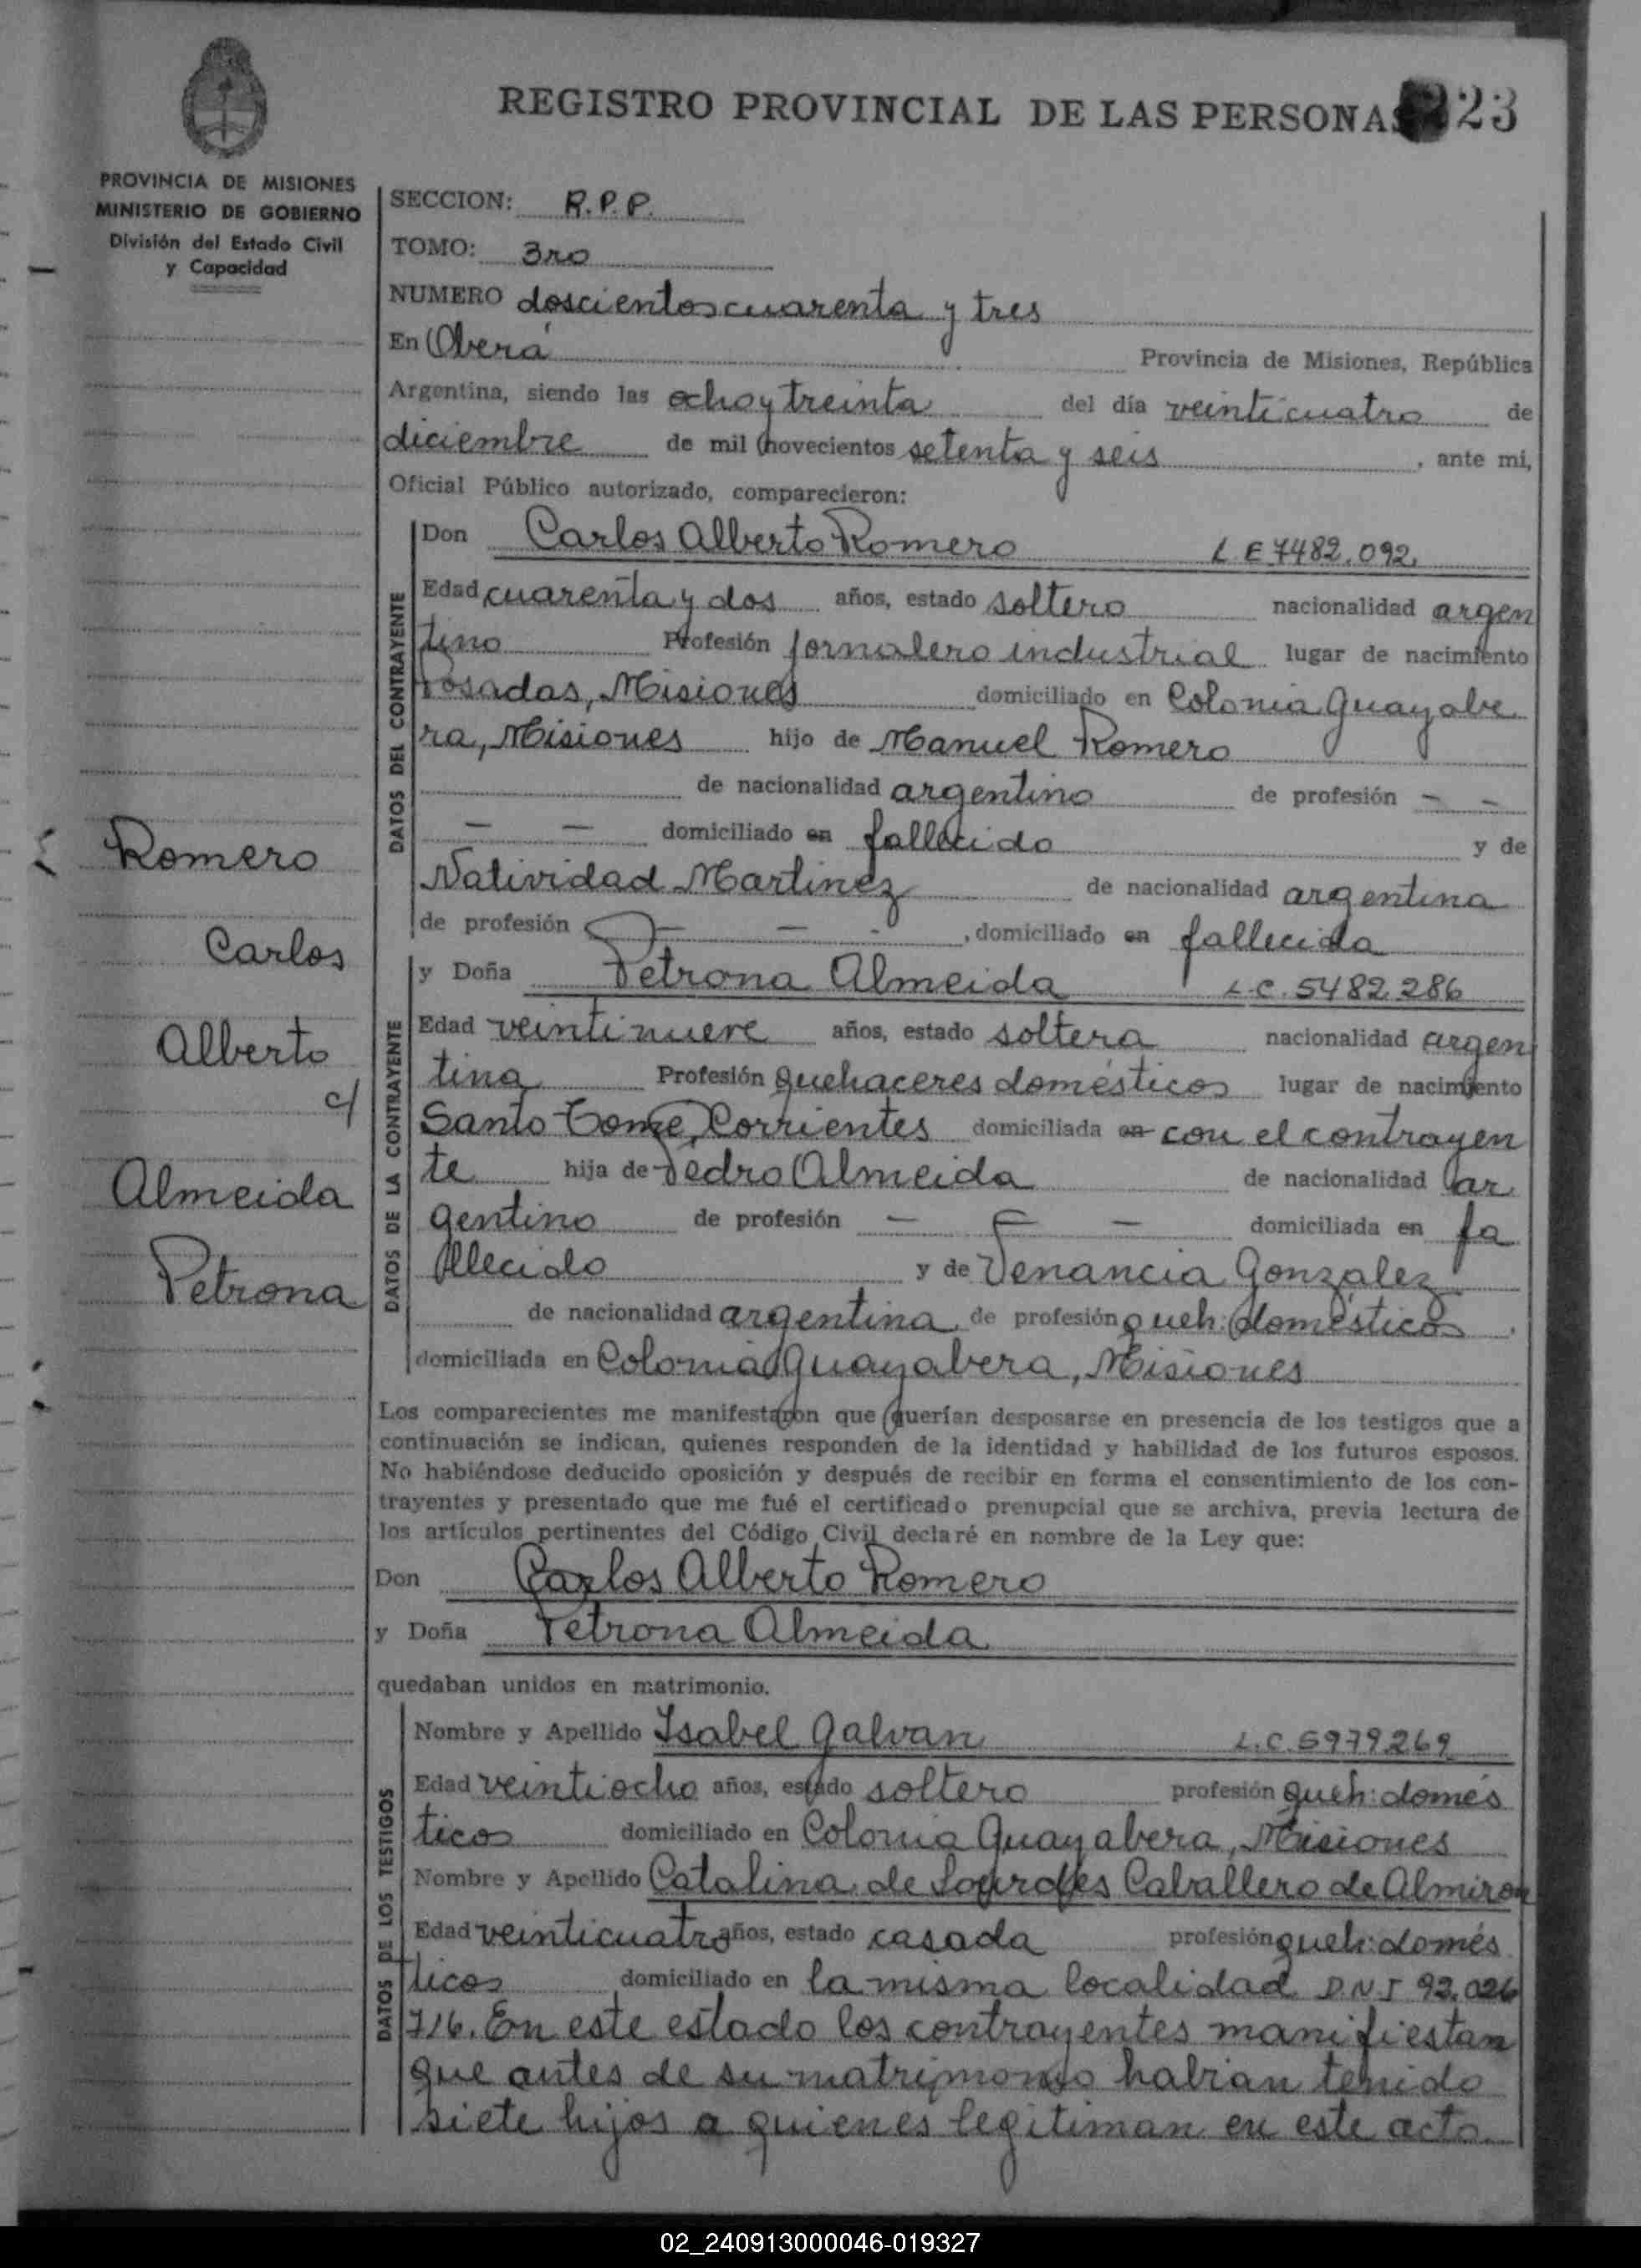 REGISTRO PROVINCIAL DE LAS PERSONAS 23
PROVINCIA DE MISIONES
MINISTERIO DE GOBIERNO
División del Estado Civil
y Capacidad
SECCION: R.P.P.
TOMO: 3ro
NUMERO doscientos cuarenta y tres
En Oberá Provincia de Misiones, República
Argentina, siendo las ocho y treinta del día veinticuatro de
diciembre de mil novecientos setenta y seis, ante mi,
Oficial Público autorizado, comparecieron:
DATOS DEL CONTRAYENTE
Don Carlos Alberto Romero L E 7482.092.
Edad cuarenta y dos años, estado soltero nacionalidad argen
tino Profesión jornalero industrial lugar de nacimiento
Posadas, Misiones domiciliado en Colonia Guayabe
ra, Misiones hijo de Manuel Romero
de nacionalidad argentino de profesión - -
- - domiciliado en fallecido y de
Natividad Martinez de nacionalidad argentina
de profesión - - - , domiciliado en fallecida
Romero
Carlos
Alberto
c/
Almeida
Petrona
DATOS DE LA CONTRAYENTE
y Doña Petrona Almeida L.C. 5482.286
Edad veintinueve años, estado soltera nacionalidad argen
tina Profesión quehaceres domésticos lugar de nacimiento
Santo Tome, Corrientes domiciliada en con el contrayen
te hija de Pedro Almeida de nacionalidad ar
gentino de profesión - - - domiciliada en fa
llecido y de Venancia Gonzalez
de nacionalidad argentina de profesión queh: domésticos.
domiciliada en Colonia Guayabera, Misiones
Los comparecientes me manifestaron que querían desposarse en presencia de los testigos que a
continuación se indican, quienes responden de la identidad y habilidad de los futuros esposos.
No habiéndose deducido oposición y después de recibir en forma el consentimiento de los con-
trayentes y presentado que me fué el certificado prenupcial que se archiva, previa lectura de
los artículos pertinentes del Código Civil declaré en nombre de la Ley que:
Don Carlos Alberto Romero
y Doña Petrona Almeida
quedaban unidos en matrimonio.
DATOS DE LOS TESTIGOS
Nombre y Apellido Isabel Galvan L.C. 5979269
Edad veintiocho años, estado soltero profesión queh: domés
ticos domiciliado en Colonia Guayabera, Misiones
Nombre y Apellido Catalina de Lourdes Caballero de Almiron
Edad veinticuatro años, estado casada profesión queh: domés
ticos domiciliado en la misma localidad D.N.I 92.026
716. En este estado los contrayentes manifiestan
que antes de su matrimonio habian tenido
siete hijos a quienes legitiman en este acto.
02_240913000046-019327